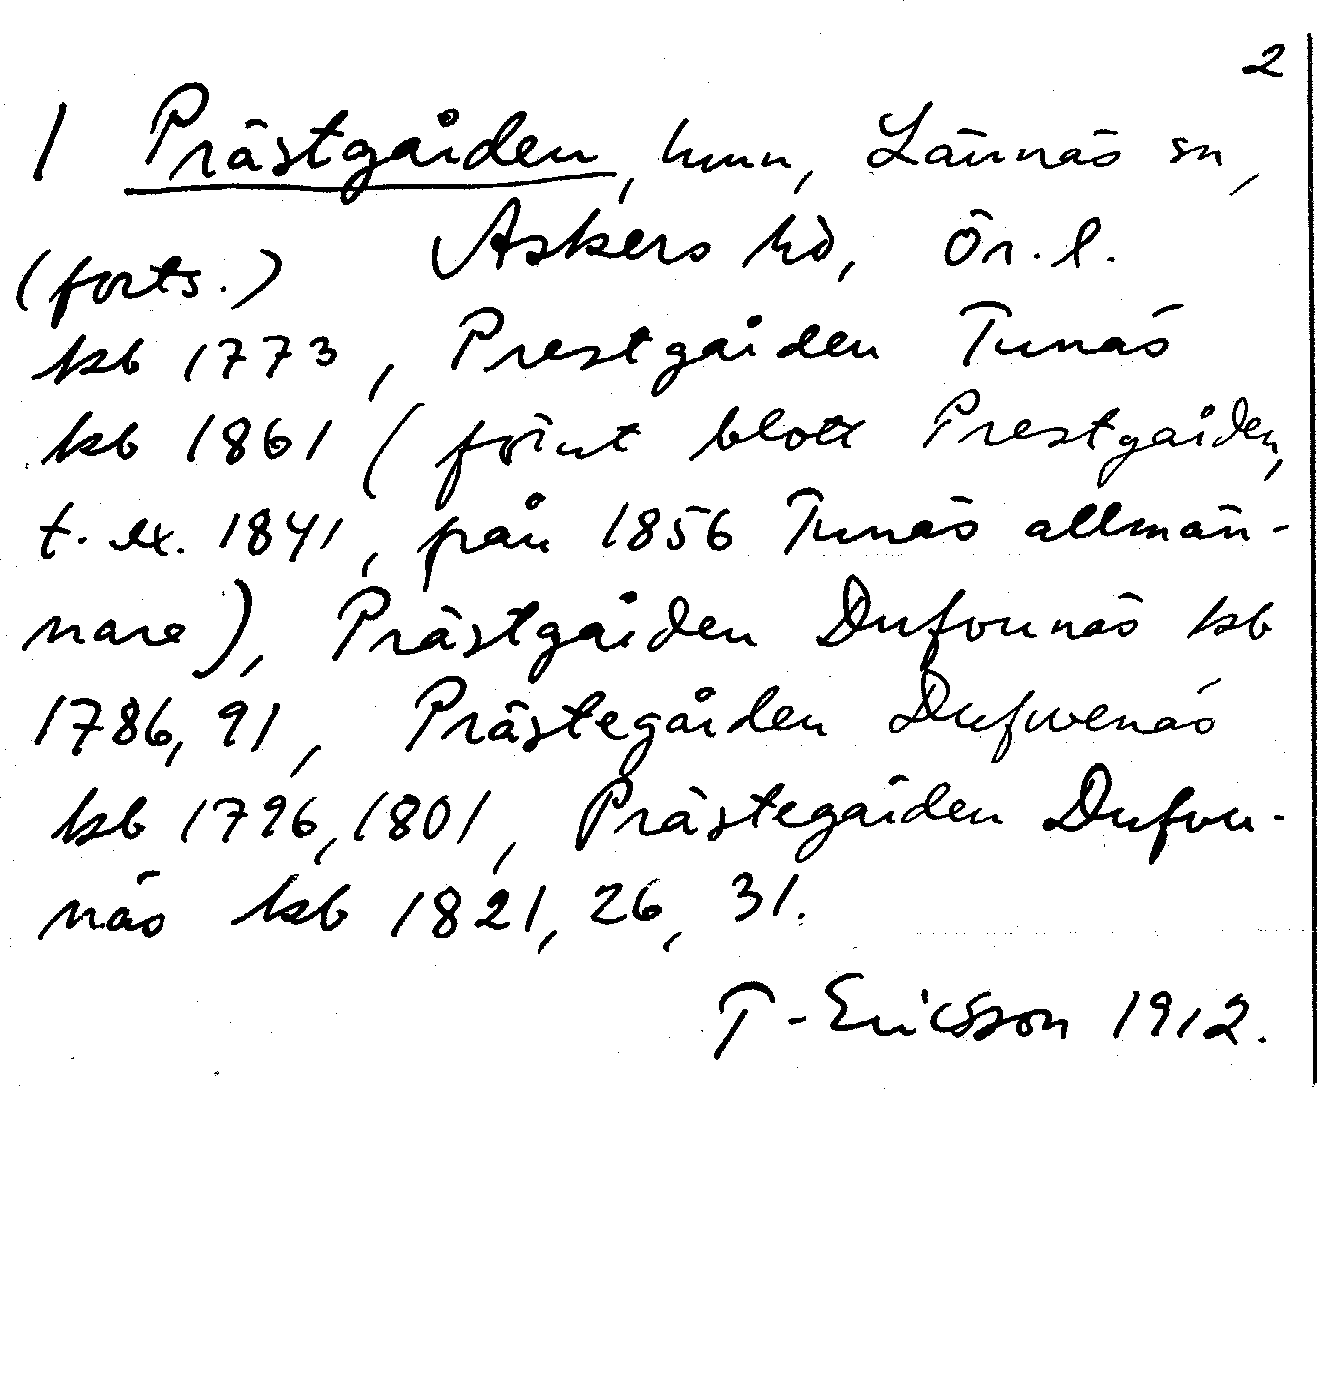 2
1 Prästgården, hmn, Lännäs sn,
(forts.) Askers hd, Ör. l.
kb 1773, Prestgården Tunäs
kb 1861 (förut blott Prestgården,
t. ex. 1841, från 1856 Tunäs allmän-
nare), Prästgården Dufvunäs kb
1786, 91, Prästegården Dufwenäs
kb 1796, 1801, Prästegården Dufvu-
näs kb 1821, 26, 31.
T-Ericsson 1912.